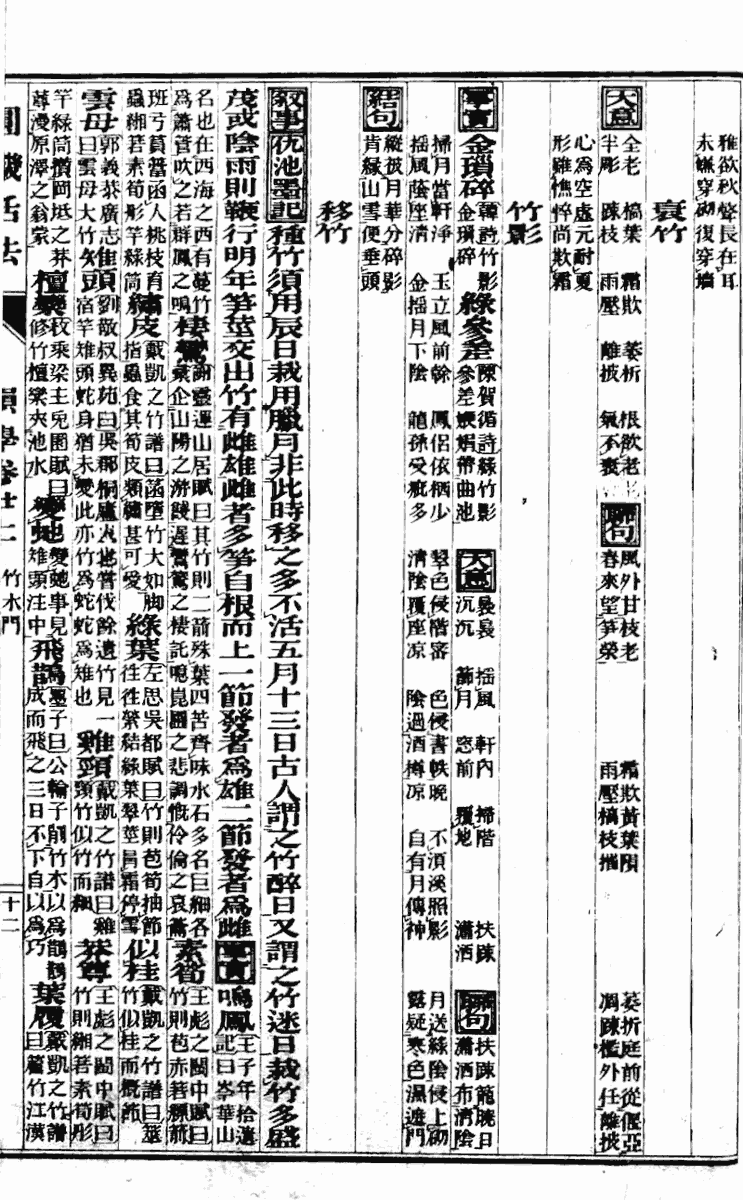 雅欲秋聲長在耳
未嫌穿砌復穿墻
衰竹
大意
全老 槁葉 霜欺 萎折 根欲老
半彫 疎枝 雨壓 離披 氣不衰
聯句
風外甘枝老 霜欺黃葉隕 萎折庭前從偃亞
春來望笋榮 雨壓槁枝摧 凋疎檻外任離披
心為空處元耐夏
形雖憔悴尚欺霜
竹影
事實
金瑣碎 韓詩竹影金瑣碎
綠參差 陳賀循詩綠竹影參差嬋娟帶曲池
大意
裊裊 搖風 軒內 掃階 扶疎
沉沉 篩月 窓前 覆地 瀟洒
聯句
扶疎籠曉日
瀟洒布清陰
掃月當軒淨 玉立風前幹 鳳侶依栖少 翠色侵階密 色侵書帙晚 不須溪照影 月送綠陰侵上砌
搖風蔭座清 金搖月下陰 龍孫受庇多 清陰覆座凉 陰過酒樽凉 自有月傳神 露疑寒色濕遮門
結句
縱彼月華分碎影
肯緣山雪便垂頭
移竹
敘事
仇池墨記 種竹須用辰日栽用臘月非此時移之多不活五月十三日古人謂之竹醉日又謂之竹迷日栽竹多盛
茂或陰雨則鞭行明年笋莖交出竹有雌雄雌者多笋自根而上一節發者為雄二節發者為雌
事實
鳴鳳 王子年拾遺記曰岑華山
名也在西海之西有蔓竹
為簫管吹之若群鳳之鳴
棲鸞 謝靈運山居賦曰其竹則二箭殊葉四苦齊味水石多名巨細各
彙企山陽之游餞遲鸞鷟之棲託噫崑園之悲調慨伶倫之哀籥
素筍 王彪之閩中賦曰竹則苞亦箬 箭
班弓貟當函人桃枝育
蟲緗箬素筍彤竿綠筒
繡皮 戴凱之竹譜曰 墮竹大如脚指蟲食其筍皮類繡甚可愛
綠葉 左思吳都賦曰竹則苞筍抽節往徃縈結綠葉翠莖冐霜停雪
似桂 戴凱之竹譜曰筀竹似桂而概節
雲母 郭義恭廣志曰雲母大竹
雉頭 劉敬叔異苑曰吳郡桐廬人也嘗伐餘遺竹見一宿竿雉頭蛇身猶未變此亦竹為蛇蛇為雉也
雞頸 戴凱之竹譜曰雞頸竹似竹而細
莽尊 王彪之閩中賦曰竹則緗箬素筍彤
竿綠筒攢岡坻之莽
蓴漫原澤之蓊蒙
檀欒 枚乘梁王兎園賦曰修竹檀欒夾池水
變虵 變虵事見雉頭注中
飛鵲 墨子曰公輪子削竹木以為鵲鵲成而飛之三日不下自以為巧
葉履 戴凱之竹譜曰䉬竹江漢
圓機活法
韻學卷廿二
竹木門
十二